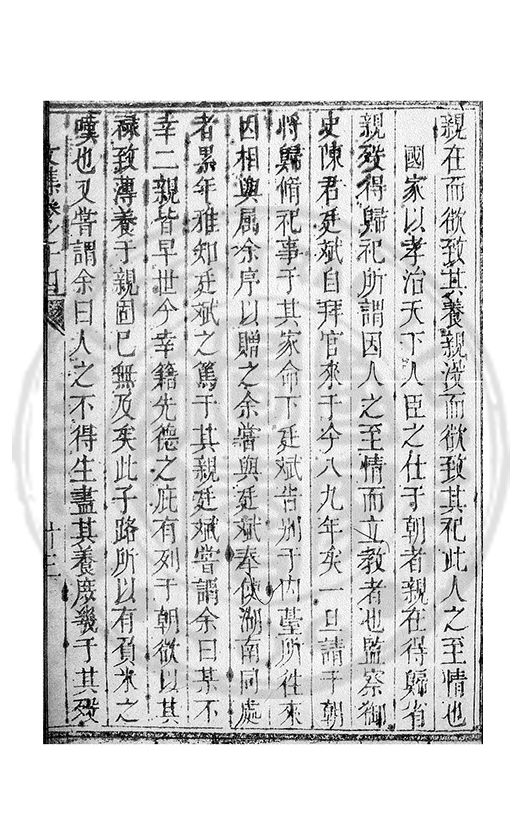 親在而欲致其養親沒而欲致其祀此人之至情也
國家以孝治天下人臣之仕于朝者親在得歸省
親歿得歸祀所謂因人之至情而立教者也監察御
史陳君廷斌自拜官來于今八九年矣一旦請于朝
將歸脩祀事于其家命下廷斌告別于內䑓所徃來
因相與属余序以贈之余嘗與廷斌奉使湖南同處
者累年雅知廷斌之篤于其親廷斌嘗謂余曰某不
幸二親皆早世今幸籍先德之庇有列于朝欲以其
祿致薄養于親固已無及矣此子路所以有負米之
嘆也又嘗謂余曰人之不得生盡其養庶幾于其歿
文集卷之十四
十三